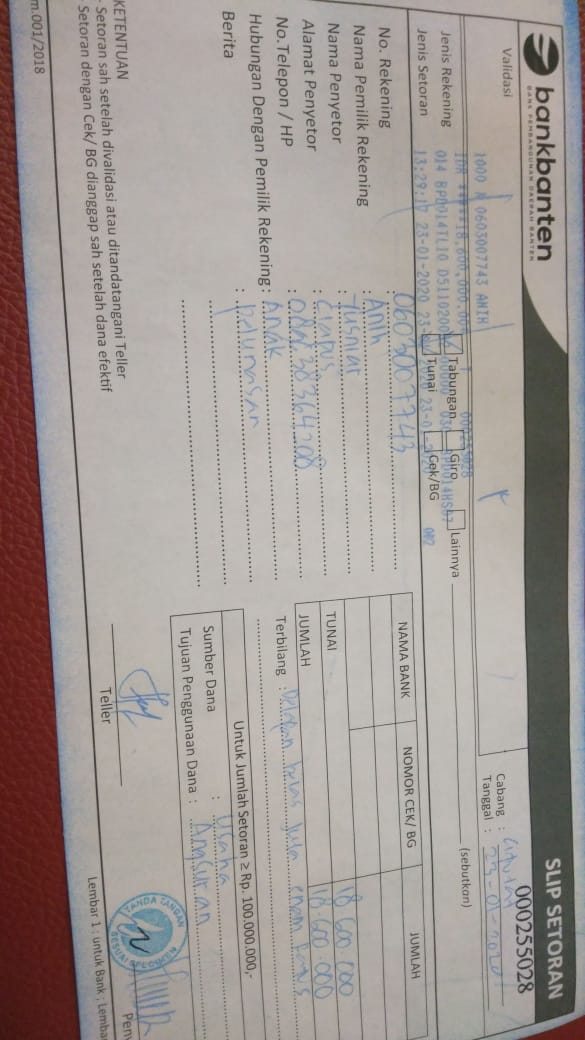 bankbanten
BANK PEMBANGUNAN DAERAH BANTEN
SLIP SETORAN
000255028
Validasi
1000 0603007743 ANIH
000255028
014 BPD0014TL10
13:29:17 23-01-2020
Cabang :
Tanggal : 23-01-2020
Jenis Rekening Tabungan Giro Lainnya (sebutkan)
Jenis Setoran Tunai Cek/BG
No. Rekening : 0603007743
Nama Pemilik Rekening : Anih
Nama Penyetor : Yusniar
Alamat Penyetor :
No.Telepon / HP :
Hubungan Dengan Pemilik Rekening: Anak
Berita : pelunasan
NAMA BANK NOMOR CEK/ BG JUMLAH
TUNAI 18.600.000
JUMLAH 18.600.000
Terbilang : Delapan belas juta enam ratus
Untuk Jumlah Setoran ≥ Rp. 100.000.000,-
Sumber Dana : Usaha
Tujuan Penggunaan Dana : Angsuran
KETENTUAN
- Setoran sah setelah divalidasi atau ditandatangani Teller
Setoran dengan Cek/ BG dianggap sah setelah dana efektif
Teller
TANDA TANGAN
SESUAI SPECIMEN
m.001/2018
Lembar 1 : untuk Bank ; Lemba